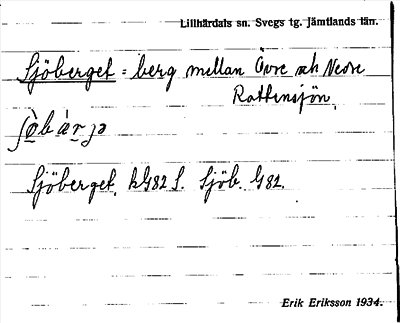 Lillhärdals sn. Svegs tg. Jämtlands län.
Sjöberget = berg mellan Övre och Nedre
Rattensjön.
Sjöberget. kG82 S. Sjöb. G82.
Erik Eriksson 1934.